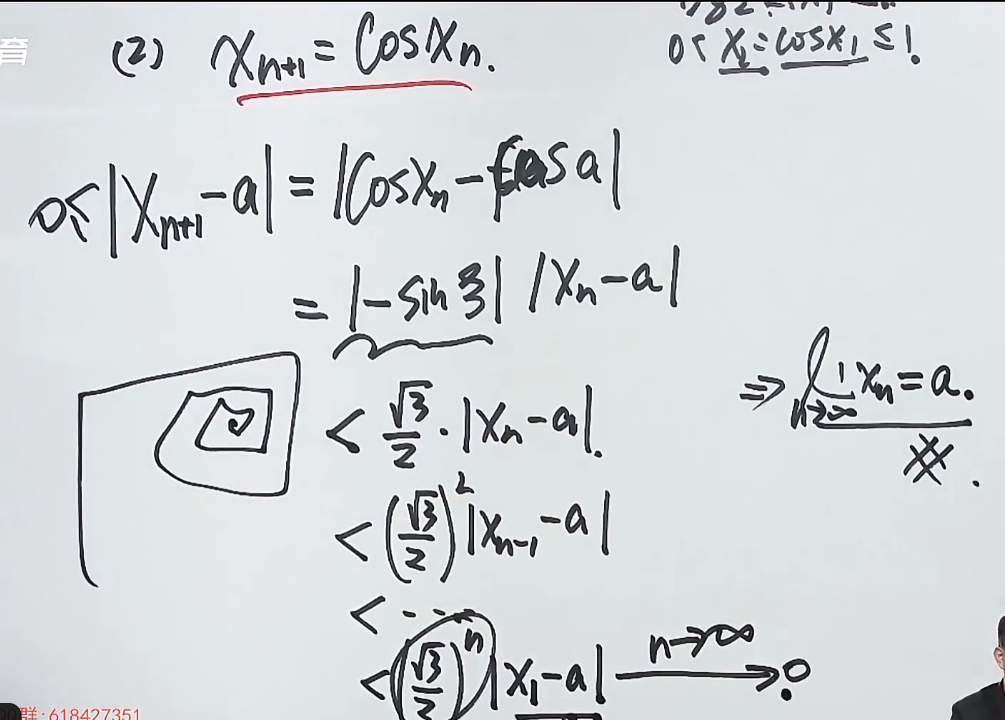 育
(2) xₙ₊₁ = cosxₙ.
0< x₂ = cosx₁ ≤ 1.
0≤ |xₙ₊₁ - a| = |cosxₙ - cos a|
= |-sin ξ| |xₙ - a|
< √3/2 · |xₙ - a|.
⇒ lim n→∞ xₙ = a.
< (√3/2)² |xₙ₋₁ - a|
< ...
< (√3/2)ⁿ |x₁ - a| n→∞ → 0.
群:618427351